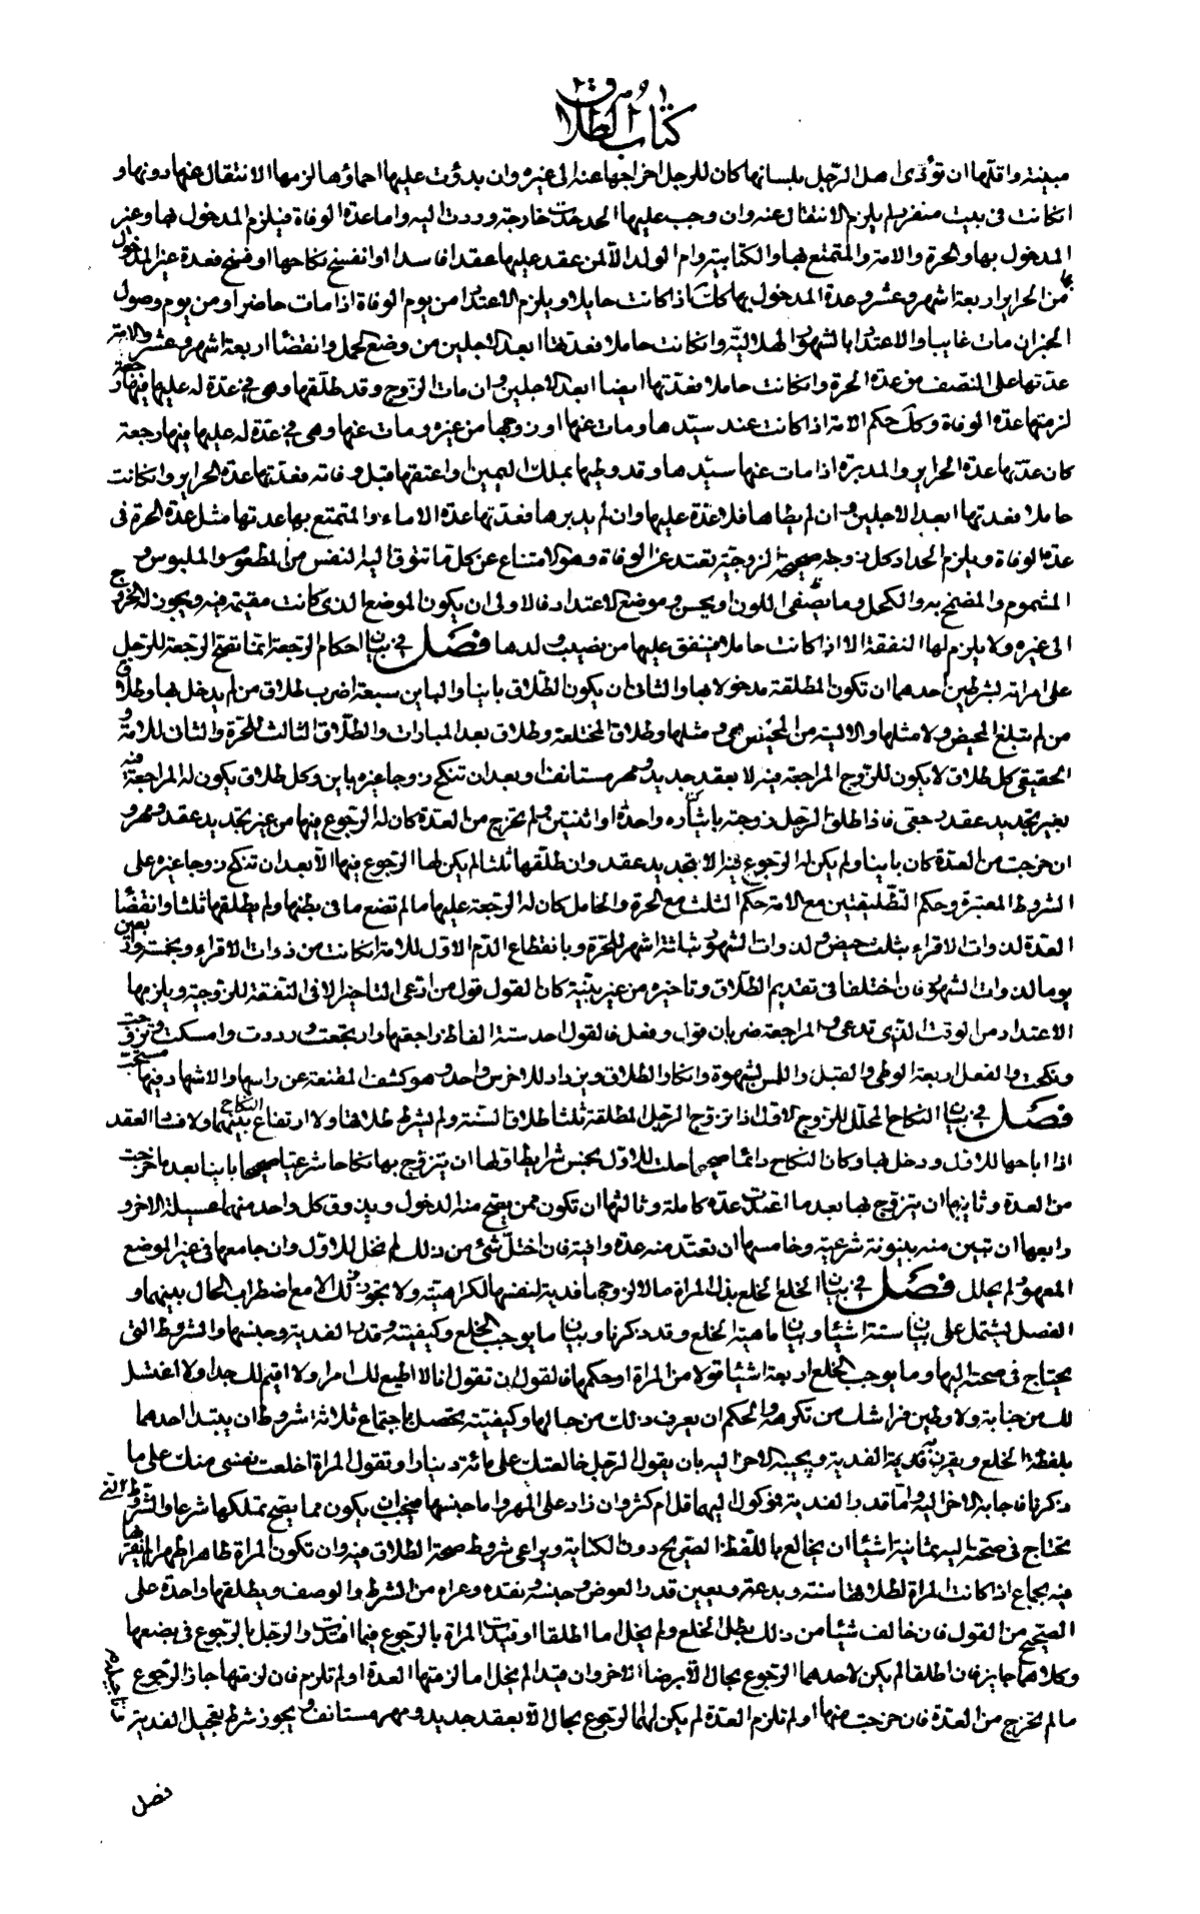 كتاب الطلاق
مبينة واقلها ان تؤذى اهل الرجل بلسانها كان للرجل اخراجها عنه الى غيره وان بدؤت عليها احماؤها لزمها الانتقال عنها دونها و
انكانت فى بيت منفرد لم يلزم الانتقال عنه وان وجب عليها الحد حدت خارجة وردت اليه واما عدة الوفاة فيلزم المدخول بها وغير
المدخول بها والحرة والامة والمتمتع بها والكتابية وام الولد الا من عقد عليها عقدا فاسدا او انفسخ نكاحها او فسخ فعدة غير المدخول
بها من الحراير اربعة اشهر وعشر وعدة المدخول بها كك اذا كانت حايلا ويلزم الاعتداد من يوم الوفاة اذا مات حاضرا ومن يوم وصول
الخبر ان مات غايبا والاعتداد بالشهور الهلالية وانكانت حاملا فعدتها ابعد الاجلين من وضع الحمل وانقضاء اربعة اشهر وعشر والامة
عدتها على النصف من عدة الحرة وانكانت حاملا فعدتها ايضا ابعد الاجلين وان مات الزوج وقد طلقها وهى فى عدة له عليها فيها رجعة
لزمتها عدة الوفاة وكك حكم الامة اذا كانت عند سيدها ومات عنها او زوجها من غيره ومات عنها وهى فى عدة له عليها فيها رجعة
كان عدتها عدة الحراير والمدبرة اذا مات عنها سيدها وقد وطيها بملك اليمين او اعتقها قبل وفاته فعدتها عدة الحراير وانكانت
حاملا فعدتها ابعد الاجلين وان لم يطاها فلا عدة عليها وان لم يدبرها فعدتها عدة الاماء والمتمتع بها عدتها مثل عدة الحرة فى
عدة الوفاة ويلزم الحداد كل زوجة صحيحة الزوجية تعتد عن الوفاة وهو الامتناع عن كل ما تتوق اليه النفس من المطعوم والملبوس و
المشموم والمضمخ به والكحل وما يصفى اللون او يحسن وموضع الاعتداد فالاولى ان يكون الموضع الذى كانت مقيمة فيه ويجوز له الخروج
الى غيره ولا يلزم لها النفقة الا اذا كانت حاملا فينفق عليها من نصيب ولدها فصل فى بيان احكام الرجعة انما تصح الرجعة للرجل
على امراته بشرطين احدهما ان تكون المطلقة مدخولا بها والثانى ان يكون الطلاق باينا والباين سبعة اضرب طلاق من لم يدخل بها وطلاق
من لم تبلغ المحيض ولا مثلها والايسة من المحيض هى ومثلها وطلاق المختلعة وطلاق بعد المبارات والطلاق الثالث للحرة والثان للامة و
الحقيقى كل طلاق لا يكون للزوج المراجعة فيه الا بعقد جديد ومهر مستانف او بعد ان تنكح زوجا غيره باين وكل طلاق يكون له المراجعة فيه
بغير تجديد عقد رجعى فاذا طلق الرجل زوجته باشارة واحدة او اثنتين ولم تخرج من العدة كان له الرجوع فيها من غير تجديد عقد ومهر و
ان خرجت من العدة كان باينا ولم يكن له الرجوع فيه الا بتجديد عقد وان طلقها ثلثا لم يكن لها الرجوع فيها الا بعد ان تنكح زوجا غيره على
الشروط المعتبرة وحكم التطليقتين مع الامة حكم الثلث مع الحرة والحامل كان له الرجعة عليها ما لم تضع ما فى بطنها ولم يطلقها ثلثا وانقضاء
العدة لذوات الاقراء بثلث حيض ولذوات الشهور بثلثة اشهر للحرة وبانقطاع الدم الاول للامة انكانت من ذوات الاقراء وبخمسة واربعين
يوما لذوات الشهور فان اختلفا فى تقديم الطلاق وتاخيره من غير بينة كان القول قول من ادعى التاخير الا فى النفقة للزوجية ويلزمها
الاعتداد من الوقت الذى تدعى والمراجعة ضربان قول وفعل فالقول احد ستة الفاظ راجعتها وارتجعت ورددت وامسكت وتزوجت
ونكحت والفعل اربعة الوطى والقبل واللمس لشهوة وانكار الطلاق ويزداد للاخرس واحد وهو كشف المقنعة عن راسها والاشهاد فيها مستحب
فصل فى بيان النكاح المحلل للزوج الاول اذا تزوج الرجل المطلقة ثلثا طلاق السنة ولم يشرط طلاقها ولا ارتفاع النكاح بينهما ولا فسخ العقد
اذا اباحها للاول ودخل بها وكان النكاح دائما صحيحا حلت للاول بخمس شرايط اولها ان يتزوج بها نكاحا شرعيا صحيحا باينا بعد ما خرجت
من العدة وثانيها ان يتزوج بها بعد ما اعتدت عدة كاملة وثالثها ان تكون ممن يصح منه الدخول ويذوق كل واحد منهما عسيلة الاخر و
رابعها ان تبين منه بينونة شرعية وخامسها ان تعتد منه عدة وافية فان اختل شئ من ذلك لم تحل للاول وان جامعها فى غير الموضع
المعهود لم يحلل فصل فى بيان الخلع الخلع بذل المراة مالا لزوجها فدية لنفسها لكراهيته ولا يجوز ذلك الا مع اضطراب الحال بينهما و
الفصل يشتمل على بيان ستة اشياء وبيان ماهية الخلع وقد ذكرنا وبيان ما يوجب الخلع وكيفيته وقدر الفدية وجنسها والشروط التى
يحتاج فى صحته اليها وما يوجب الخلع اربعة اشياء قولا من المراة او حكمها فالقول ان تقول انا لا اطيع لك امرا ولا اقيم لك حدا ولا اغتسل
لك من جنابة ولاوطين فراشك من تكرهه والحكم ان يعرف ذلك من حالها وكيفيته يحصل باجتماع ثلاثة شروط ان يبتدا احدهما
بلفظة الخلع ويقرن به فدية الفدية ويجيبه الاخر اليه بان يقول الرجل خالعتك على مائة دينار او تقول المراة اخلعت نفسى منك على ما
ذكرنا فاجابه الاخر اليه واما قدر الفدية فموكول اليهما قل ام كثر وان زاد على المهر واما جنسها فيجب ان يكون مما يصح تملكها شرعا والشروط التى
يحتاج فى صحته اليه ثمانية اشياء ان يخالع باللفظ الصريح دون الكناية ويراعى شروط صحة الطلاق فيه وان تكون المراة طاهرا طهرا لم يقربها
فيه بجماع اذا كانت المراة لطلاقها سنة وبدعة وتعيين قدر العوض وجنسه ونقده وعراه من الشرط والوصف ويطلقها واحدة على
الصحيح من القول فان خالف شيئا من ذلك بطل الخلع ولم يخل اما اطلقا او قيدت المراة بالرجوع فيما افتدت والرجل بالرجوع فى بضعها
وكلاهما جايز فان اطلقا لم يكن لاحدهما الرجوع بحال الا برضا الاخر وان قيدا لم يخل اما لزمتها العدة او لم تلزم فان لزمتها جاز الرجوع
ما لم تخرج من العدة فان خرجت منها او لم تلزم العدة لم يكن لهما الرجوع بحال الا بعقد جديد ومهر مستانف ويجوز شرط تعجيل الفدية
فصل